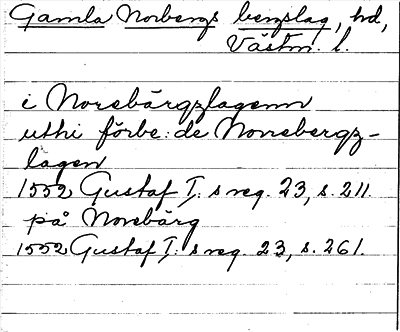 Gamla Norbergs bergslag, hd,
Västm. l.
i Norebärgzlagenn
uthi förbe:de Norrebergz-
lagen
1552 Gustaf I:s reg. 23, s. 211.
på Norebärg
1552 Gustaf I:s reg. 23, s. 261.